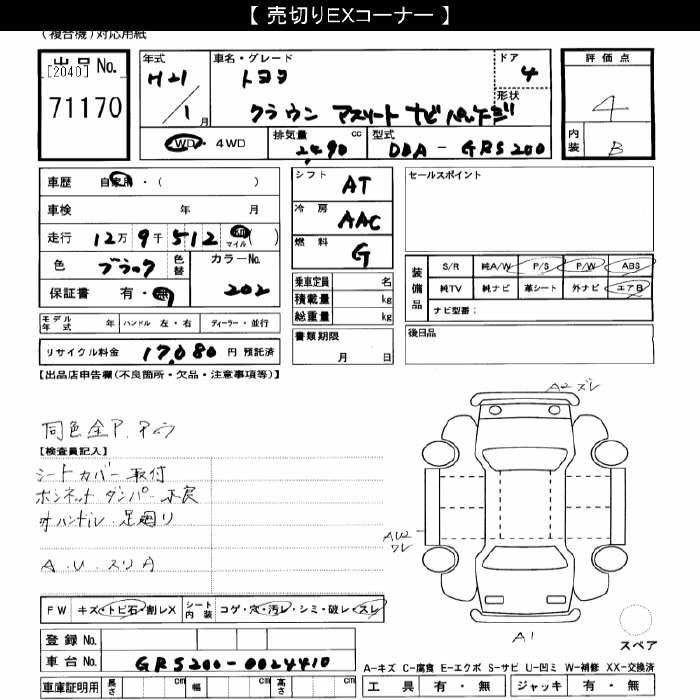 【 売切りEXコーナー 】
(複合機)対応用紙
出品 No.
[2040]
71170
年式 H21 / 1 月
車名・グレード トヨタ
クラウン アスリート ナビパッケージ
ドア 4
形状
評価点 4
内装 B
2WD・4WD
排気量 2,490 cc
型式 DBA - GRS200
車歴 自家用・( )
車検 年 月
走行 12万 9千 512 km マイル ( )
色 ブラック 色替 カラーNo. 202
保証書 有・無
モデル年式 年 ハンドル 左・右 ディーラー・並行
リサイクル料金 17,080 円 預託済
シフト AT
冷房 AAC
燃料 G
乗車定員 名
積載量 kg
総重量 kg
書類期限
月 日
セールスポイント
装備品
S/R 純A/W P/S P/W ABS
純TV 純ナビ 革シート 外ナビ エアB
ナビ型番:
後日品
【出品店申告欄(不良箇所・欠品・注意事項等)】
同色全P.
【検査員記入】
シートカバー取付
ボンネットダンパー不良
オハンドル・足廻り
A.U.スリA
A2 ズレ
AU2
ワレ
A1
スペア
FW キズ・トビ石・割レX シート内装 コゲ・穴・汚レ・シミ・破レ・スレ
登録 No.
車台 No. GRS200-0024410
車庫証明用 長さ cm 幅 cm 高さ cm
A-キズ C-腐食 E-エクボ S-サビ U-凹ミ W-補修 XX-交換済
工具 有・無 ジャッキ 有・無